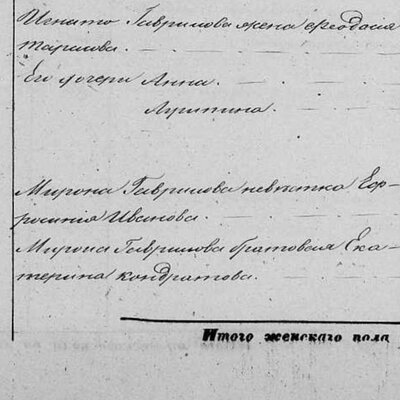 Игната Гаврилова жена Феодосия
Тарасова.
Его дочери Анна.
Мирона Гаврилова невестка Евф-
росиния Иванова.
Мирона Гаврилова братовая Ека-
терина Кондратова.
Итого женского пола